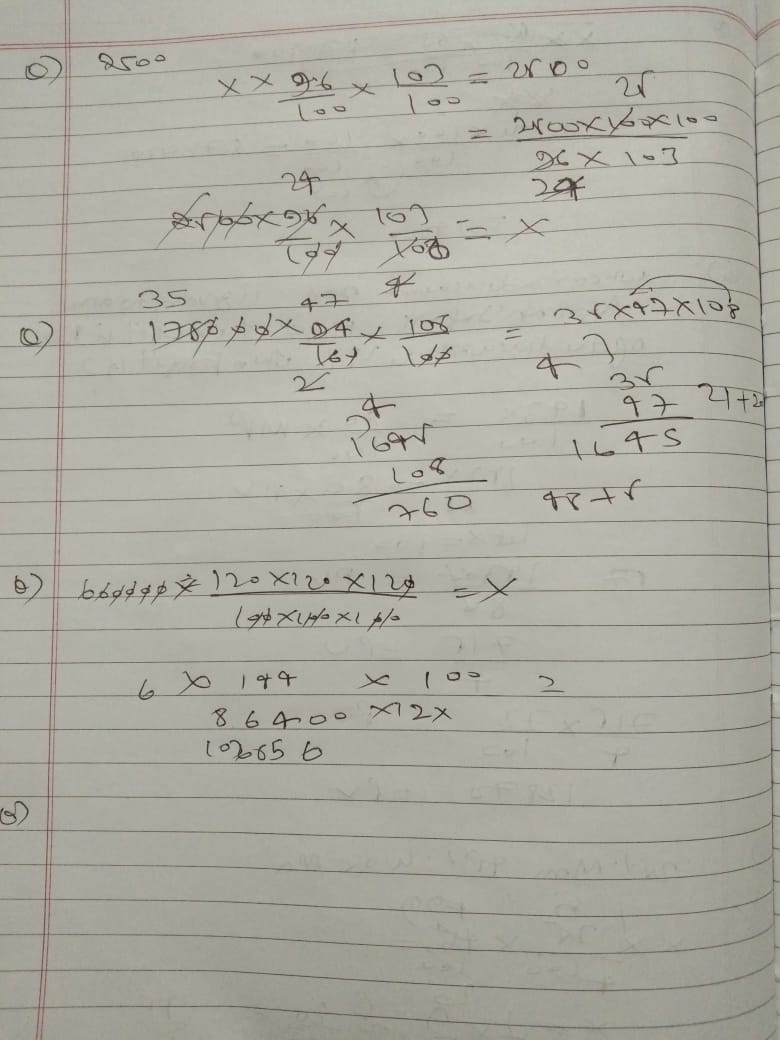 Q) 2500
x × 96/100 × 103/100 = 2500
25
= 2500×100×100 / 96 × 103
24
24
2500×96/100 × 103/100 = x
4
35 47
Q) 1750000× 94/100 × 108/100 = 35×47×108
2
4
35
47 21+2
1645
1645
108
760 48+5
Q) 600000 × 120×120×120 / 100×100×100 = x
6 × 144 × 100 =
86400 ×12×
Q)